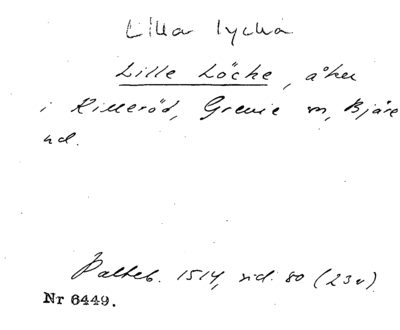 Lilla lycka
Lille Löcke, åker
i Killeröd, Grevie sn, Bjäre
hd.
Palteb. 1514, sid. 80 (23v)
Nr 6449.